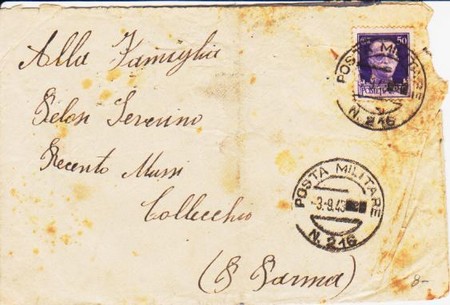 Alla Famiglia
Pelosi Severino
Recento Mussi
Collecchio
(P Parma)
50
POSTA MILITARE
N. 216
POSTA MILITARE
-3.9.43
N. 216
8-